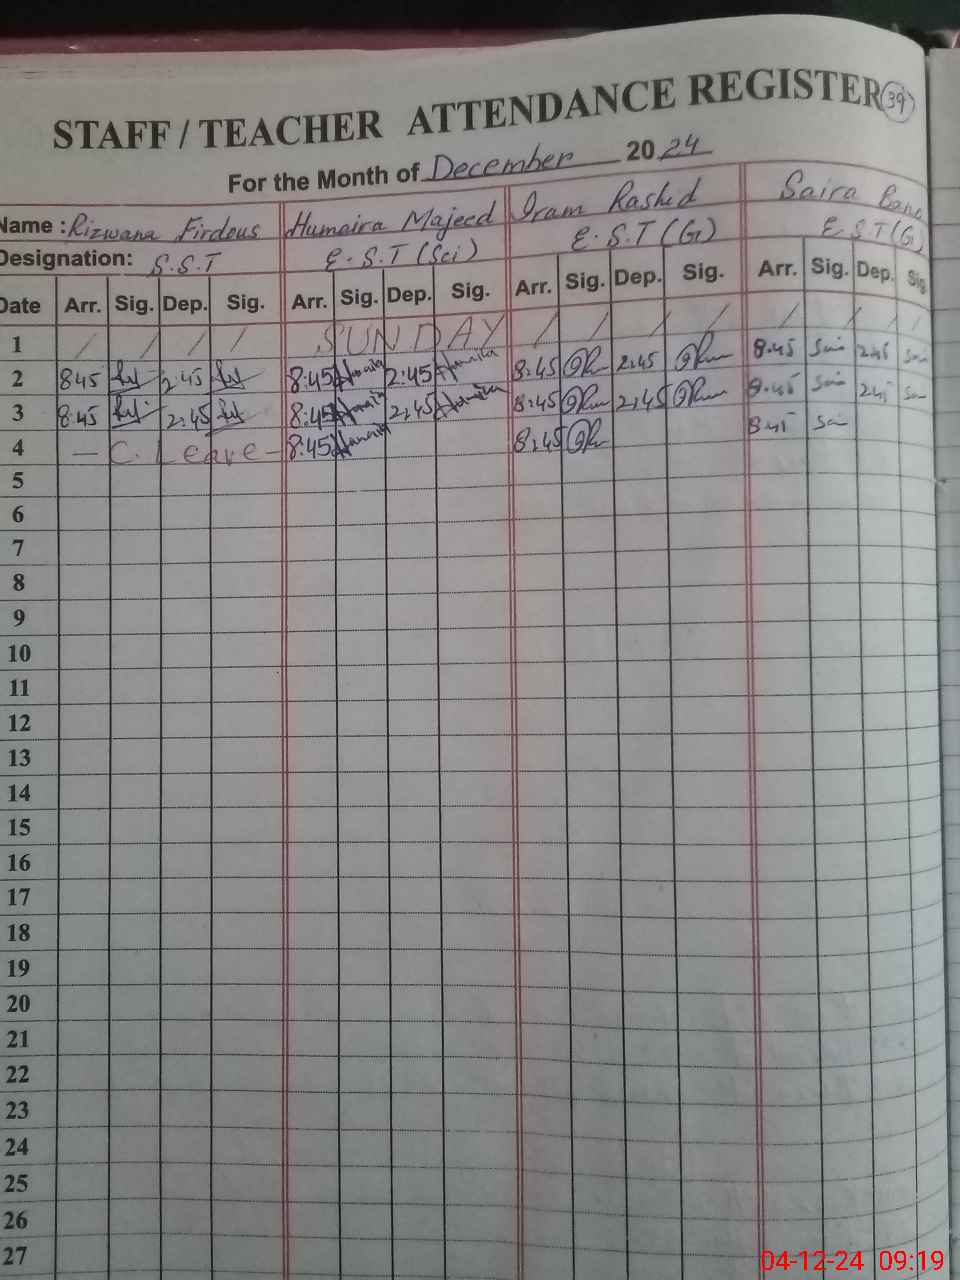 STAFF / TEACHER ATTENDANCE REGISTER 39
For the Month of December 2024
Name : Rizwana Firdous Humaira Majeed Iram Rashid Saira Bano
Designation: S.S.T E.S.T (Sci) E.S.T (G) E.S.T (G)
Date Arr. Sig. Dep. Sig. Arr. Sig. Dep. Sig. Arr. Sig. Dep. Sig. Arr. Sig. Dep. Sig
1 / / / / SUNDAY / / / / / / /
2 845 2:45 8:45 2:45 8:45 2:45 8:45 2:45
3 8:45 2:45 8:45 2:45 8:45 2:45 8:45 2:45
4 — C. Leave - 8:45 8:45 8:45
5
6
7
8
9
10
11
12
13
14
15
16
17
18
19
20
21
22
23
24
25
26
27
04-12-24 09:19